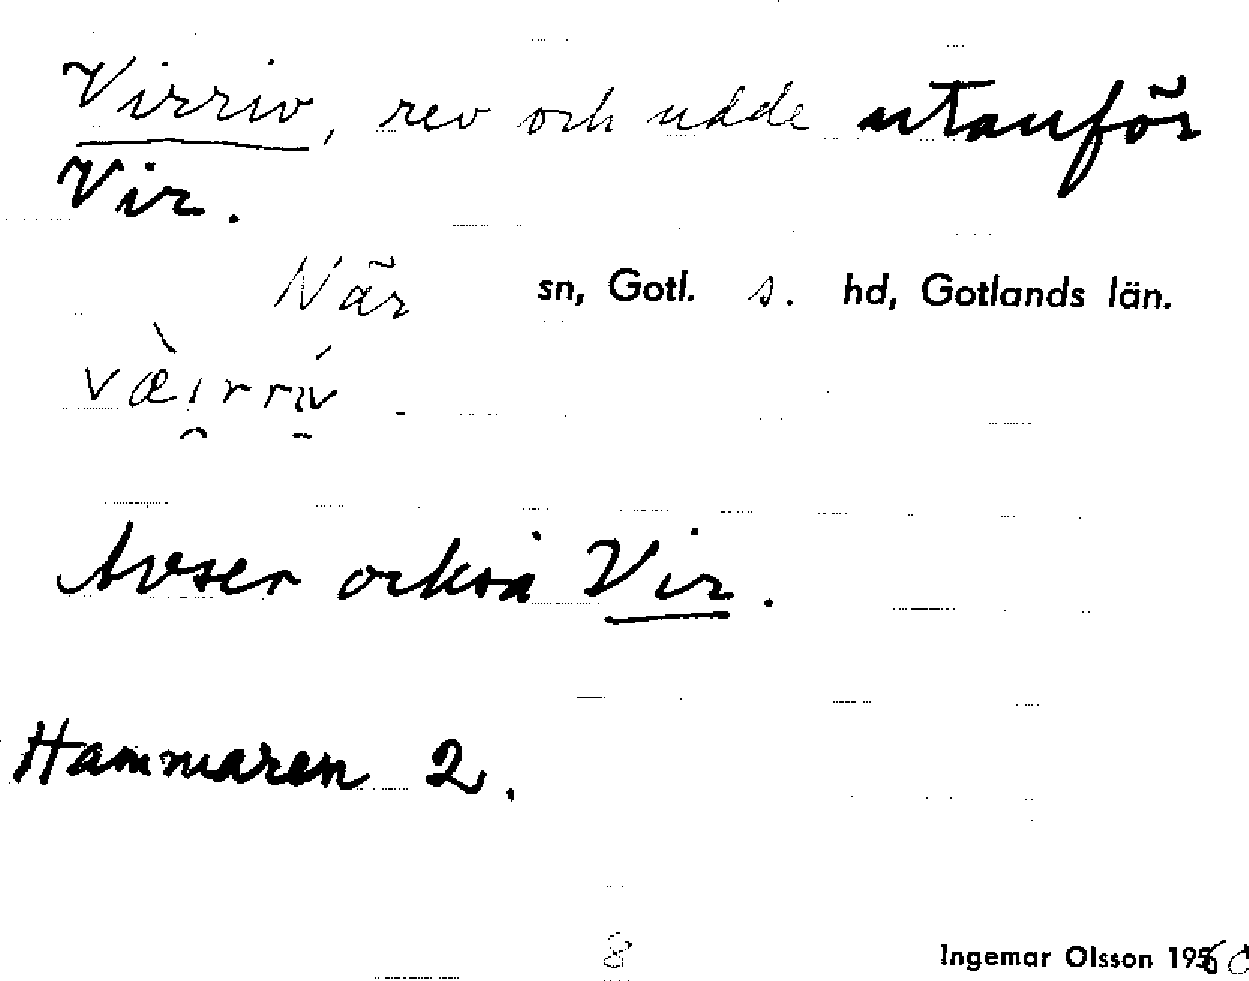 Virriv, rev och udde utanför
Vir.
När sn, Gotl. s. hd, Gotlands län.
væ̀ı̯rrív
Avser också Vir.
Hammaren 2.
8
Ingemar Olsson 1960